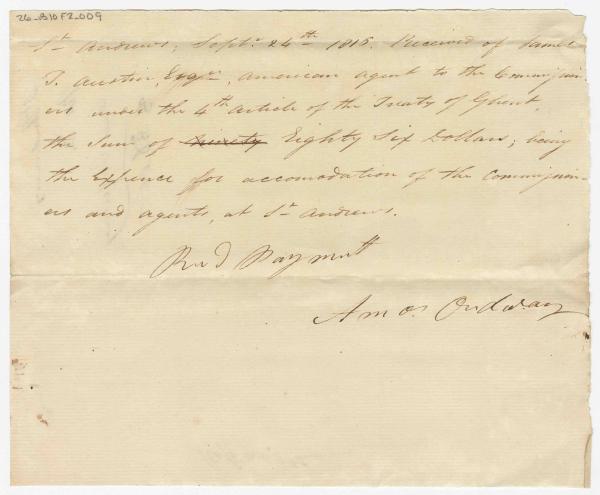 26-B10F2-009
St Andrews, Septr 24th 1816. Received of James
T. Austin, Esqr, American agent to the Commission-
ers under the 4th article of the Treaty of Ghent,
the Sum of ninety Eighty Six Dollars; being
the Expence for accomodation of the Commission-
ers and agents, at St Andrews.
Recd Paymett
Amos Ordway